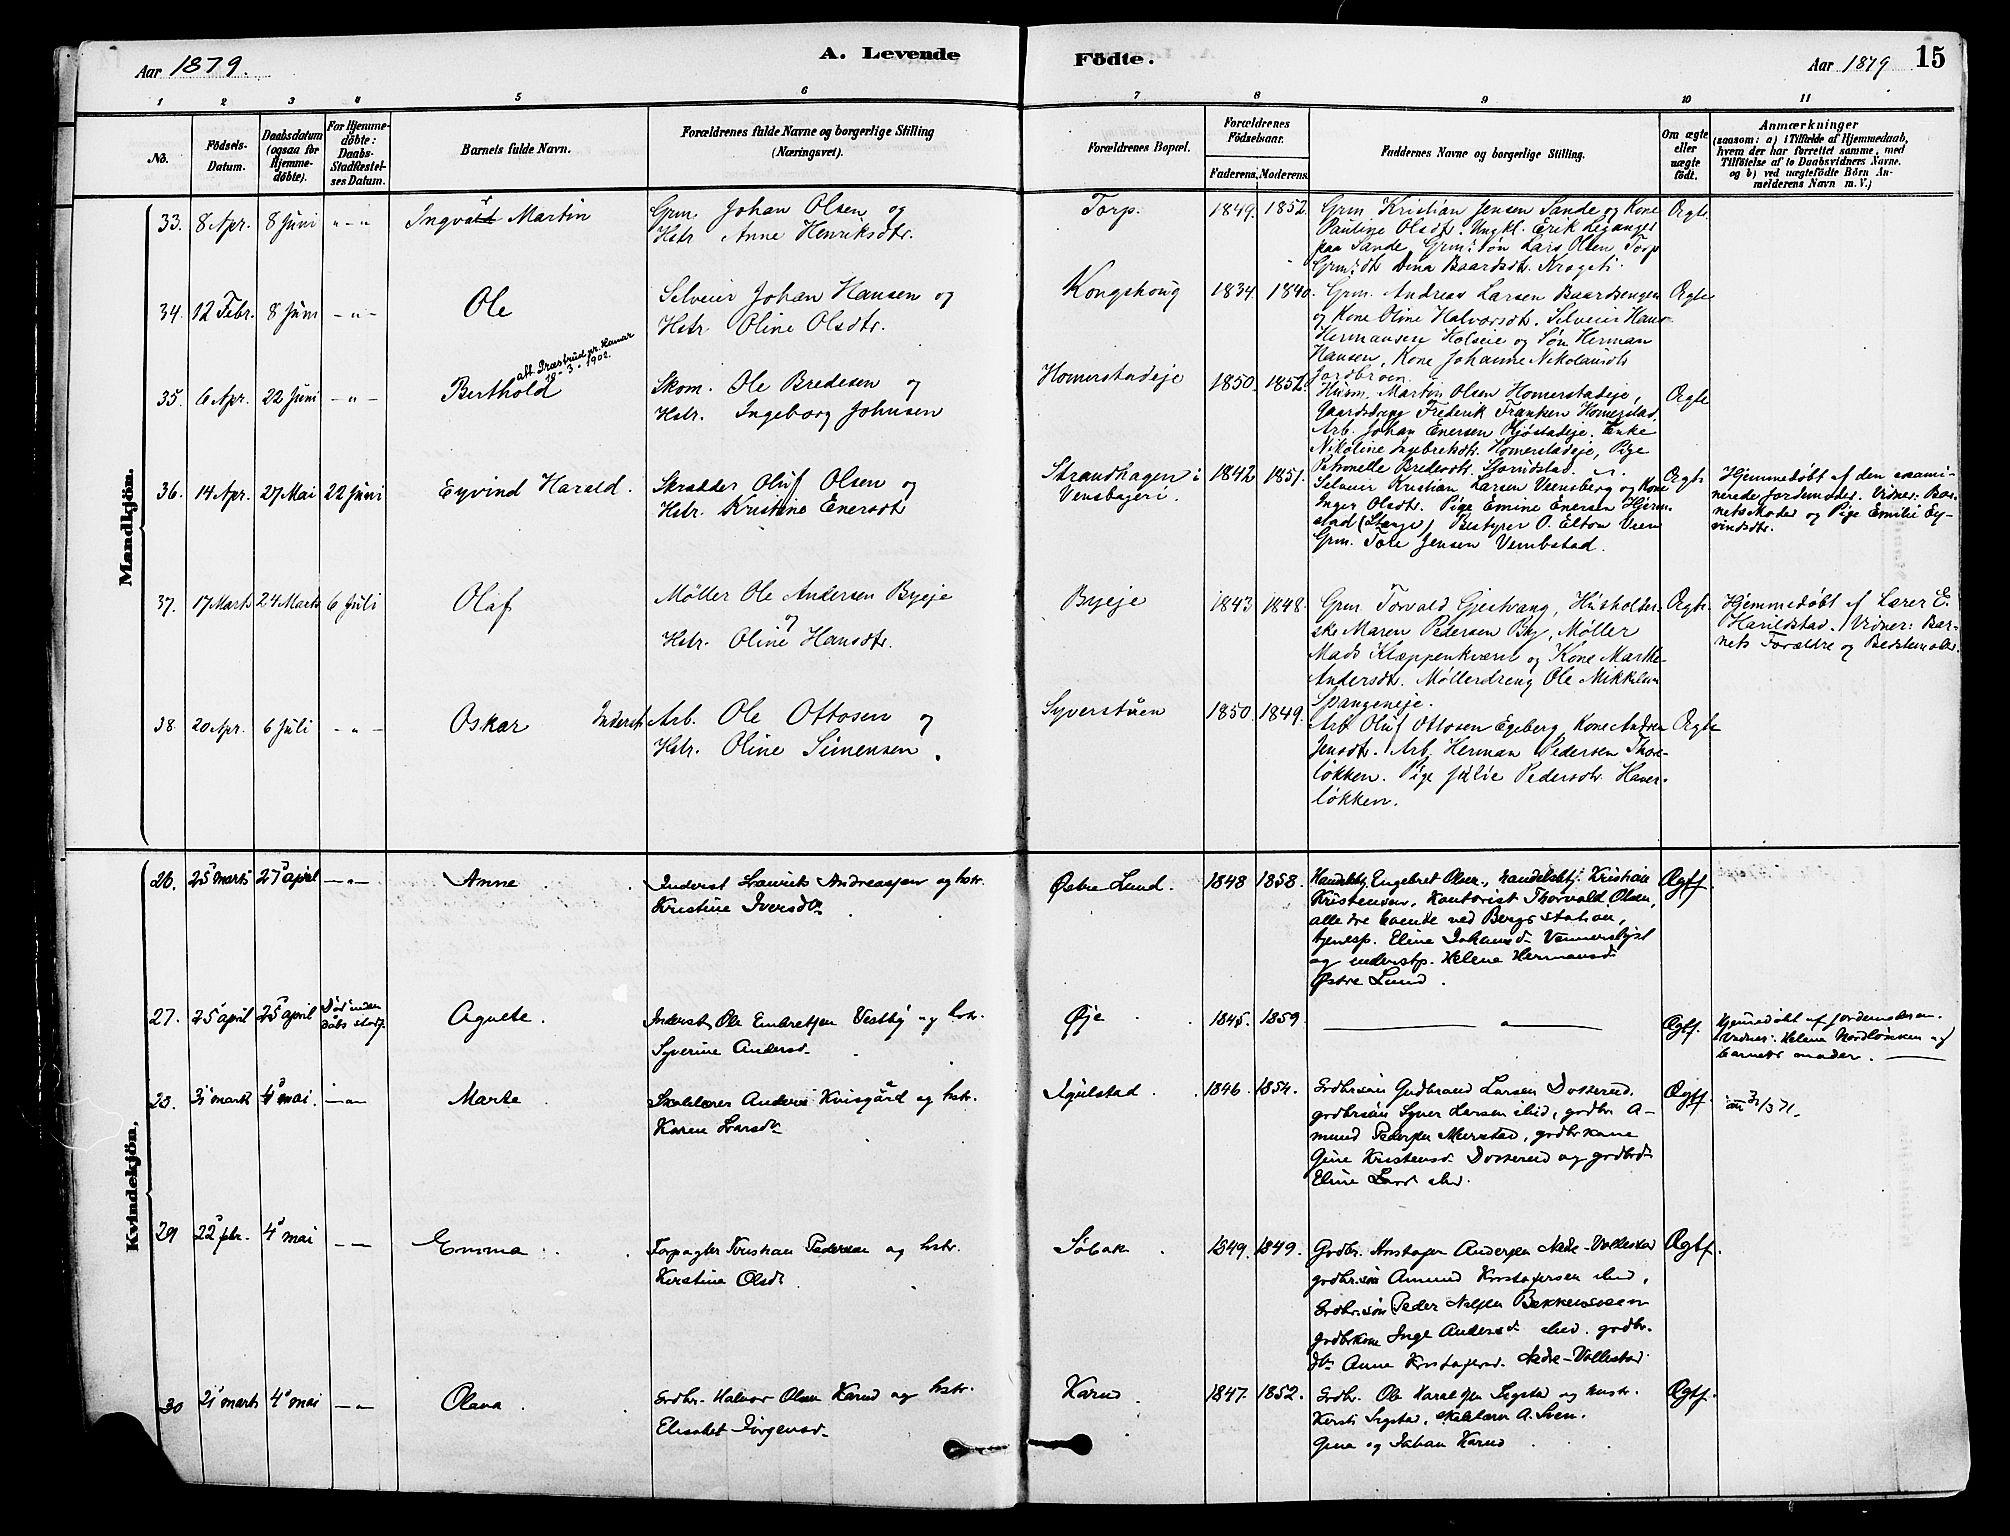 Aar 1879.
A. Levende
Födte.
Aar 1879
15
1 2 3 4 5 6 7 8 9 10 11
No.
Födsels-Datum.
Daabsdatum (ogsaa for Hjemme-döbte).
For Hjemme-döbte: Daabs-Stadfestel-ses Datum.
Barnets fulde Navn.
Forældrenes fulde Navne og borgerlige Stilling (Næringsvei).
Forældrenes Bopæl.
Forældrenes Födselsaar.
Faderens. Moderens.
Faddernes Navne og borgerlige Stilling.
Om ægte eller uægte födt.
Anmærkninger
(saasom: a) i Tilfælde af Hjemmedaab, hvem der har forrettet samme, med Tilföielse af to Daabsvidners Navne, og b) ved uægtefödte Börn An-melderens Navn m. V.)
Mandkjön.
33. 8 Apr. 8 Juni " - " Ingvald Martin
Grm. Johan Olsen og
Hstr Anne Henriksdtr.
Torp. 1849. 1852.
Grm. Kristian Jensen Sande og Kone
Pauline Olsdtr. Ungkl. Erik Leganger
paa Sande, Grm: Søn Lars Olsen Torp
Grm: dtr Dina Baardsdtr. Krageti.
Ægte
34. 12 Febr. 8 Juni - " - Ole
Selveier Johan Hansen og
Hstr Oline Olsdtr.
Kongshoug 1834. 1840.
Grm. Andreas Larsen Baardsengen
og Kone Oline Halvorsdtr. Selveier Hans
Hermansen Holseie og Søn Herman
Hansen, Kone Johanne Nikolaisdtr
Jordbröen.
Ægte
att. Præstrud pr. Hamar
19-3-1902.
35. 6 Apr. 22 Juni - " - Berthold
Skom. Ole Bredesen og
Hstr. Ingeborg Johnsen
Homerstadeje 1850. 1852.
Husm. Martin Olsen Homerstadeje,
Gaardsdreng Frederik Frantsen Homerstad,
Arb. Johan Enersen Hjøstadeje. Enke
Nikoline Ingebretsdtr. Homerstadeje, Pige
Petronelle Bredesdtr.
Ægte
36. 14 Apr. 27 Mai 22 Juni Eyvind Harald.
Skrædder Oluf Olsen og
Hstr. Kristine Enersdtr
Strandhagen i
Vensbygeri. 1842 1851.
Selveier Kristian Larsen Veensberg og Kone
Inger Olsdtr. Pige Emine Enersen Hjerm-
stad (Stange) Bestyrer O. Elton Veen
Grm. Tore Jensen Vembstad.
Ægte
Hjemmedøbt af den exami-
nerede Jordemoder. Vidner: Bar-
nets Moder og Pige Emilie Ey-
vindsdtr.
37. 17 Marts 24 Marts 6 Juli Olaf
Møller Ole Andersen Byeje
og
Hstr. Oline Hansdtr.
Byeje 1843 1848.
Grm. Torvald Gjestvang, Husholder-
ske Maren Pedersen By, Møller
Mads Klæppenkværn og Kone Marthe
Andersdtr. Møllerdreng Ole Mikkelsen
Spangeneje.
Ægte
Hjemmedøbt af Lærer E.
Harildstad. Vidner: Bar-
nets Forældre og Bedstemoder.
38. 20 Apr. 6 Juli - " - Oskar
Inderst Arb. Ole Ottosen og
Hstr. Oline Simensen.
Syverstuen 1850. 1849.
Arb. Oluf Ottosen Egeberg, Kone Andrea
Jensdtr. Arb. Herman Pedersen Thor-
løkken. Pige Julie Pedersdtr. Haver-
løkken.
Ægte
Kvindekjön,
26. 25 marts 27 april - " - Anne
Inderst Laurits Andreassen og hstr.
Kristine Iversdr
Østre Lund. 1848 1858.
Handelsbtj. Engebret Olsen, handelsbtj. Kristian
Kristensen, Kontorist Thorvald Olsen,
alle tre boende ved Bergs station,
tjenesp. Eline Johansd. Vennerskjst
og inderstp. Helene Hermansd.
Østre Lund.
Ægtf.
27. 25 april 25 april Død inden dåbs stadf. Agnete.
Inderst Ole Embretsen Vestby og hstr.
Syverine Andersd.
Øje 1845. 1859.
Ægtf.
Hjemmedøbt af jordemoderen.
Vidner: Helene Nordløkken og
barnets moder.
28. 31 marts 4 mai. - " - Marte
Skolelærer Anders Kvisgård og hstr.
Karen Larsdr
Igulstad 1846. 1854.
Grdbrsøn Gudbrand Larsen Dotterud,
grdbrsøn Syver Larsen ibid, grdbr. A-
mund Pedersen Murstad, grdbrkone
Gine Kristensd. Dotterud og grdbrd.
Eline Larsd ibid.
Ægtf.
29 22 febr. 4 mai - - Emma
Forpagter Kristian Pedersen og hstr.
Kerstine Olsd.
Sóbak 1849. 1849.
Grdbr. Kristofer Andersen Nedre-Vollestad
grdbr.søn Amund Kristofersen ibid,
Grdbr.søn Peder Nilsen Bekkensveen
grdbrkone Inge Andersd. ibid. grdbr.
dtr Anne Kristofersd. Nedre-Vollestad
Ægtf.
30 21 marts 4 mai - " - Olava
Grdbr. Halvor Olsen Karud og hstr.
Elisabet Jörgensd.
Karud 1847. 1852.
Grdbr. Ole Haralsen Sigstad og hustr.
Kersti Sigstad, skolelærer A. Sven.
Gina og Johan Karud
Ægtf.